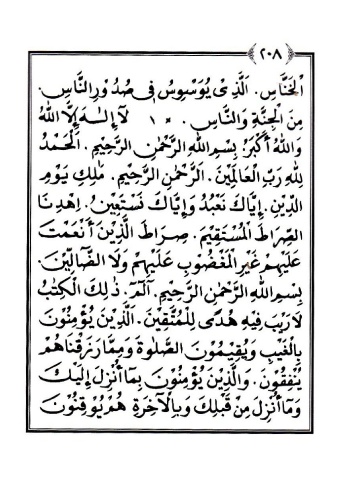 ٢٠٨
الْخَنَّاسِ. اَلَّذِى يُوَسْوِسُ فِى صُدُوْرِ النَّاسِ.
مِنَ الْجِنَّةِ وَالنَّاسِ. × ١ لَآ إِلٰهَ إِلَّا اللهُ
وَاللهُ أَكْبَرُ. بِسْمِ اللهِ الرَّحْمٰنِ الرَّحِيْمِ. اَلْحَمْدُ
لِلّٰهِ رَبِّ الْعَالَمِيْنَ. اَلرَّحْمٰنِ الرَّحِيْمِ. مٰلِكِ يَوْمِ
الدِّيْنِ. إِيَّاكَ نَعْبُدُ وَإِيَّاكَ نَسْتَعِيْنُ. اِهْدِنَا
الصِّرَاطَ الْمُسْتَقِيْمَ. صِرَاطَ الَّذِيْنَ أَنْعَمْتَ
عَلَيْهِمْ غَيْرِ الْمَغْضُوْبِ عَلَيْهِمْ وَلَا الضَّآلِّيْنَ.
بِسْمِ اللهِ الرَّحْمٰنِ الرَّحِيْمِ. الٓمٓ. ذٰلِكَ الْكِتٰبُ
لَا رَيْبَ فِيْهِ هُدًى لِلْمُتَّقِيْنَ. اَلَّذِيْنَ يُؤْمِنُوْنَ
بِالْغَيْبِ وَيُقِيْمُوْنَ الصَّلٰوةَ وَمِمَّا رَزَقْنَاهُمْ
يُنْفِقُوْنَ. وَالَّذِيْنَ يُؤْمِنُوْنَ بِمَآ أُنْزِلَ إِلَيْكَ
وَمَآ أُنْزِلَ مِنْ قَبْلِكَ وَبِالْآخِرَةِ هُمْ يُوْقِنُوْنَ